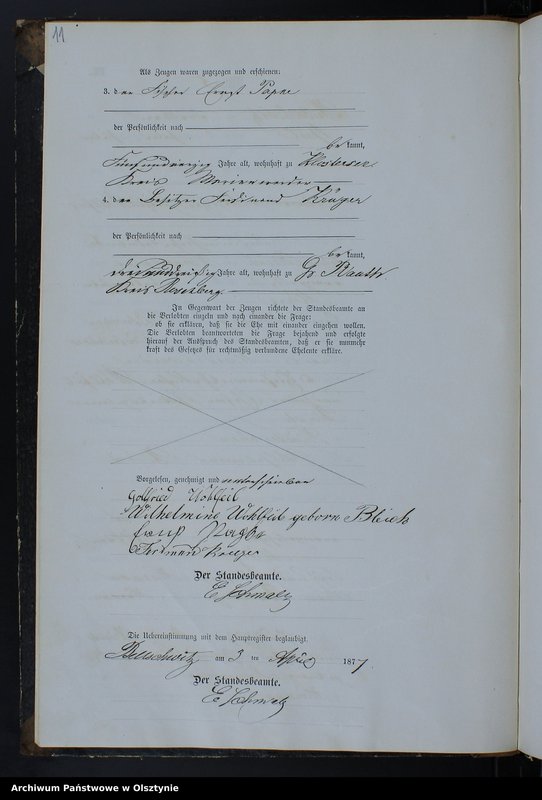 11
Als Zeugen waren zugezogen und erschienen:
3. der Fischer Ernst Papke
der Persönlichkeit nach
bekannt,
Fünfundvierzig Jahre alt, wohnhaft zu Klostersee
Kreis Marienwerder
4. der Besitzer Ferdinand Krüger
der Persönlichkeit nach
bekannt,
dreiunddreißig Jahre alt, wohnhaft zu Gr.
Kreis Rosenberg
In Gegenwart der Zeugen richtete der Standesbeamte an
die Verlobten einzeln und nach einander die Frage:
ob sie erklären, daß sie die Ehe mit einander eingehen wollen.
Die Verlobten beantworteten die Frage bejahend und erfolgte
hierauf der Ausspruch des Standesbeamten, daß er sie nunmehr
kraft des Gesetzes für rechtmäßig verbundene Eheleute erkläre.
Vorgelesen, genehmigt und unterschrieben
Gottfried Wohlfeil
Wilhelmine Wohlfeil geborn
Krüger
Der Standesbeamte.
E Schmalz
Die Uebereinstimmung mit dem Hauptregister beglaubigt.
am 3 ten April 1877
Der Standesbeamte.
E Schmalz
Archiwum Państwowe w Olsztynie